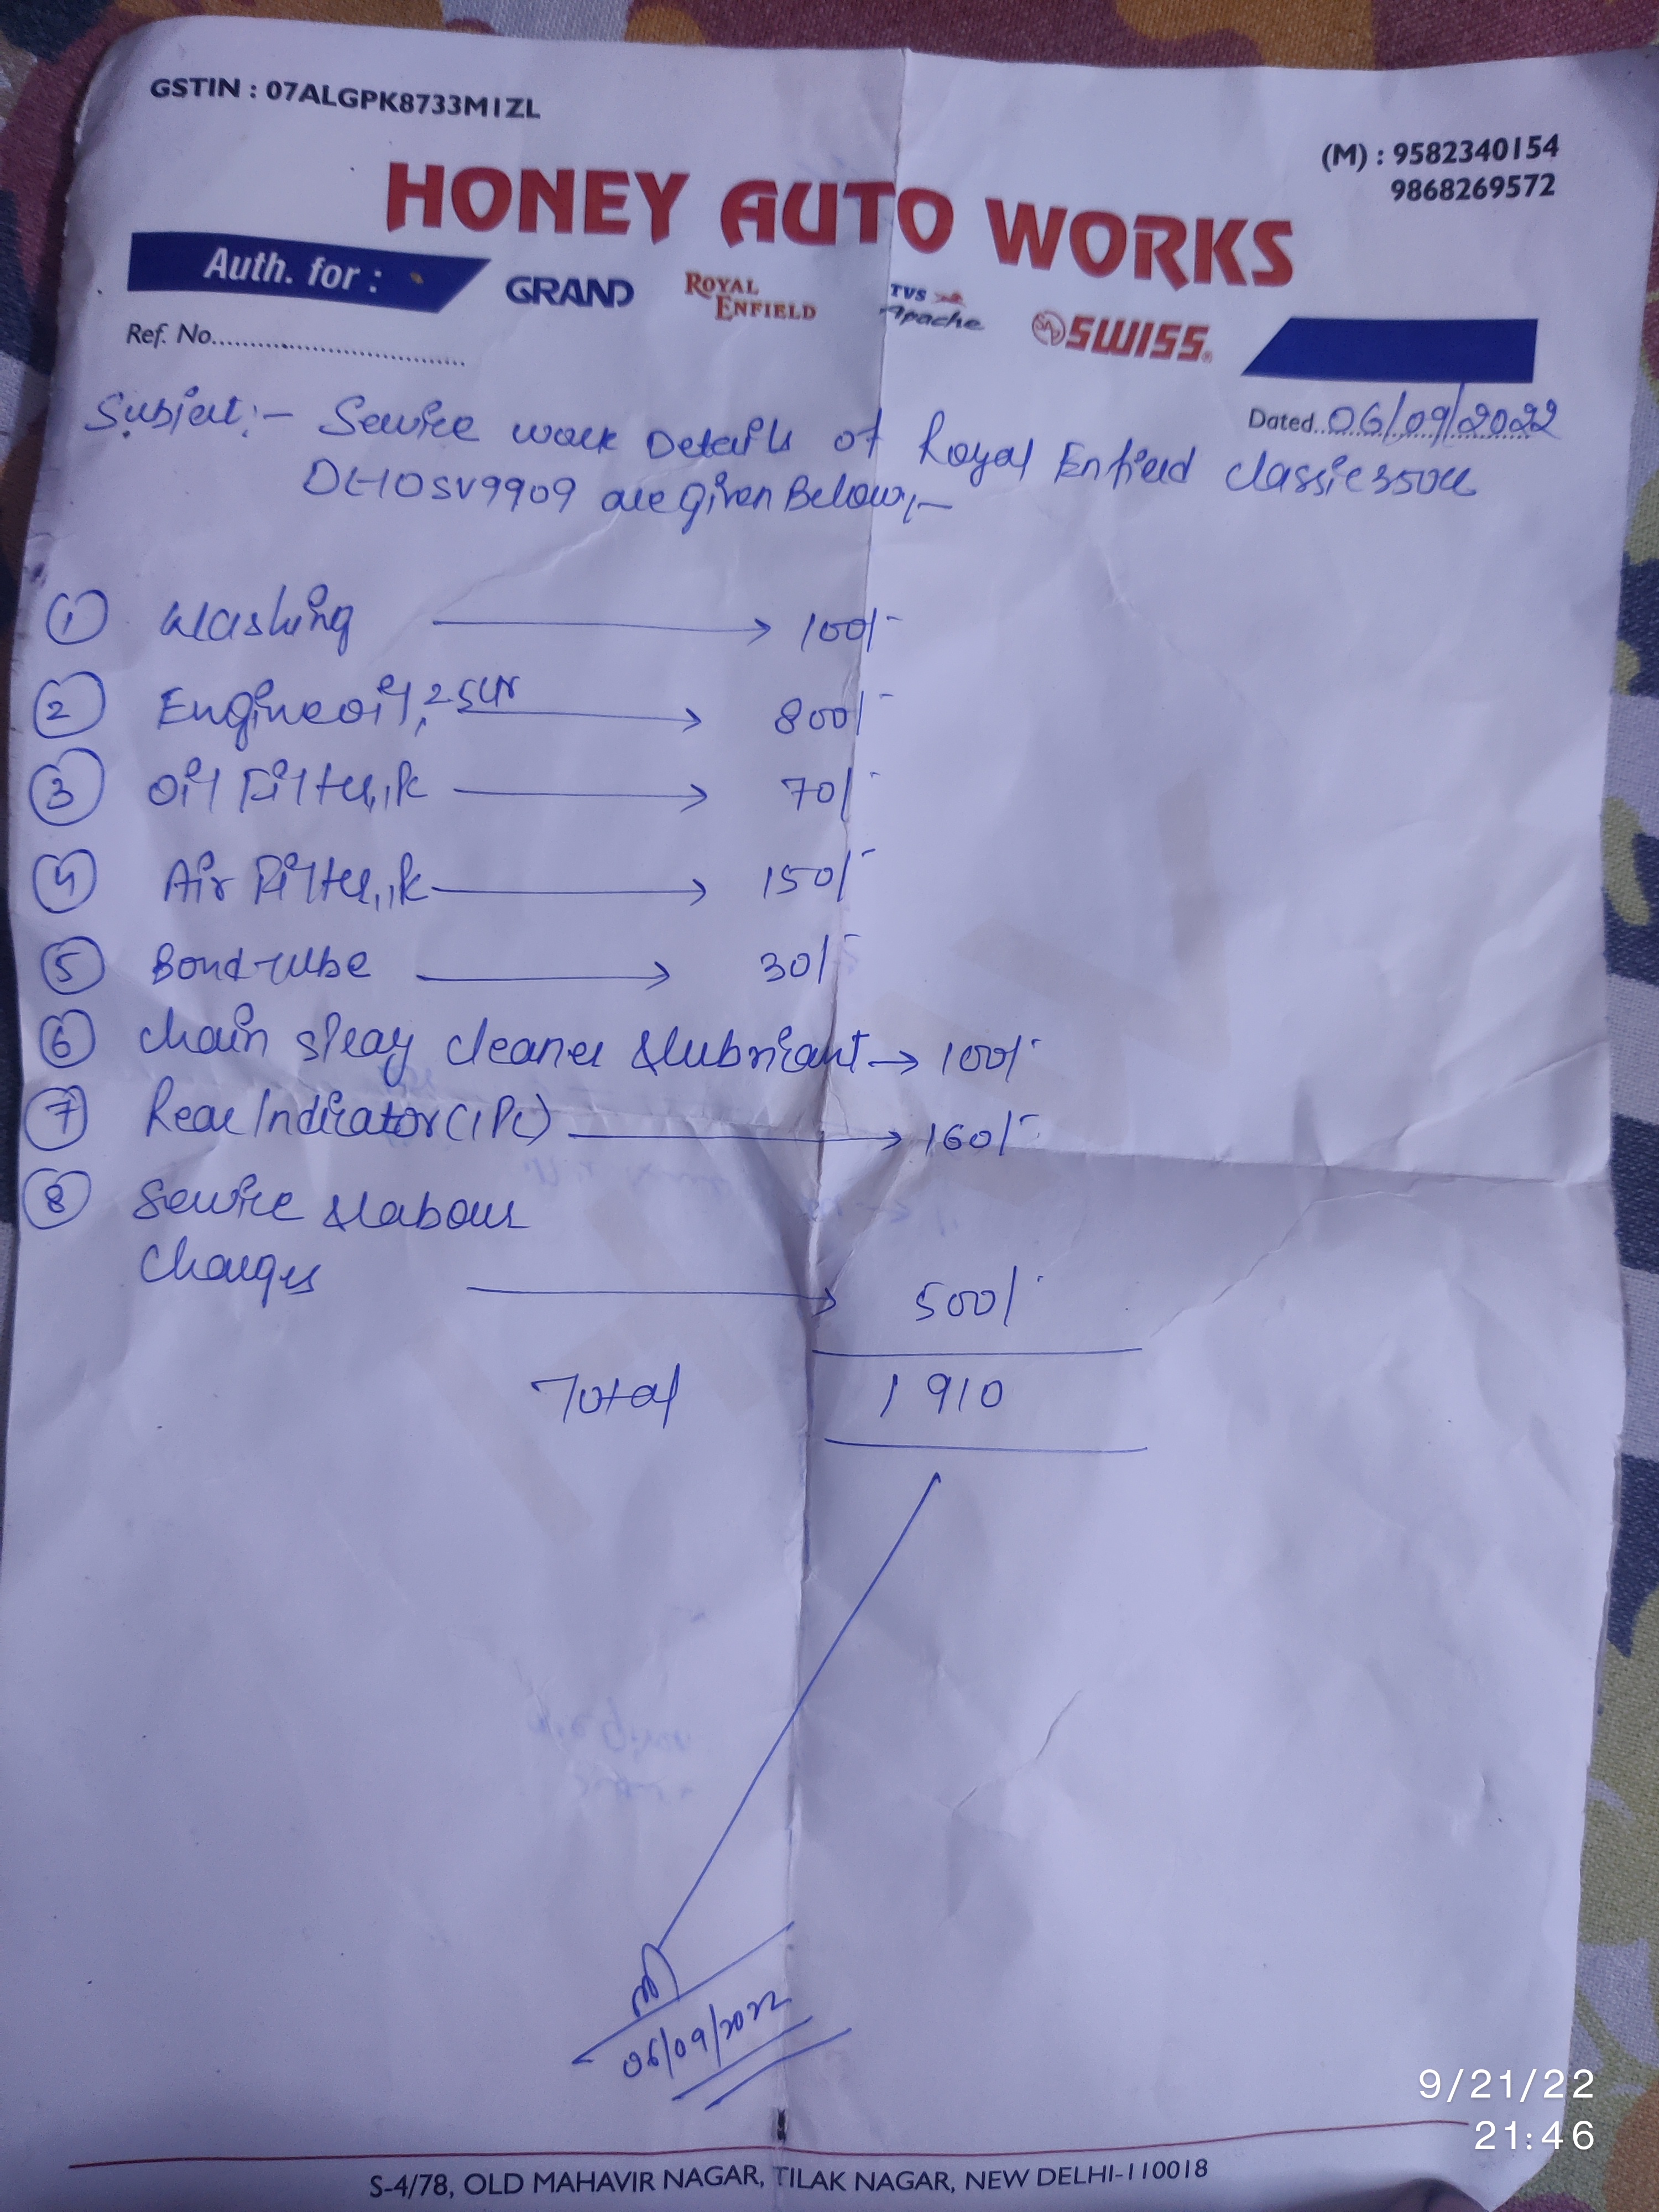 GSTIN : 07ALGPK8733M1ZL
(M) : 9582340154
9868269572
HONEY AUTO WORKS
Auth. for :
GRAND
ROYAL ENFIELD
TVS Apache
SWISS
Ref. No.
Dated 06/09/2022
Subject:- Service work Details of Royal Enfield Classic 350cc
DL10SV9909 are given Below:-
1 Washing → 100/-
2 Engine oil, 2.5 Ltr → 800/-
3 Oil Filter, 1k → 70/-
4 Air Filter, 1k → 150/-
5 Bond tube → 30/-
6 Chain spray cleaner & lubricant → 100/-
7 Rear Indicator (1 Pc) → 160/-
8 Service & labour
Charges → 500/-
Total 1910
06/09/2022
9/21/22
21:46
S-4/78, OLD MAHAVIR NAGAR, TILAK NAGAR, NEW DELHI-110018